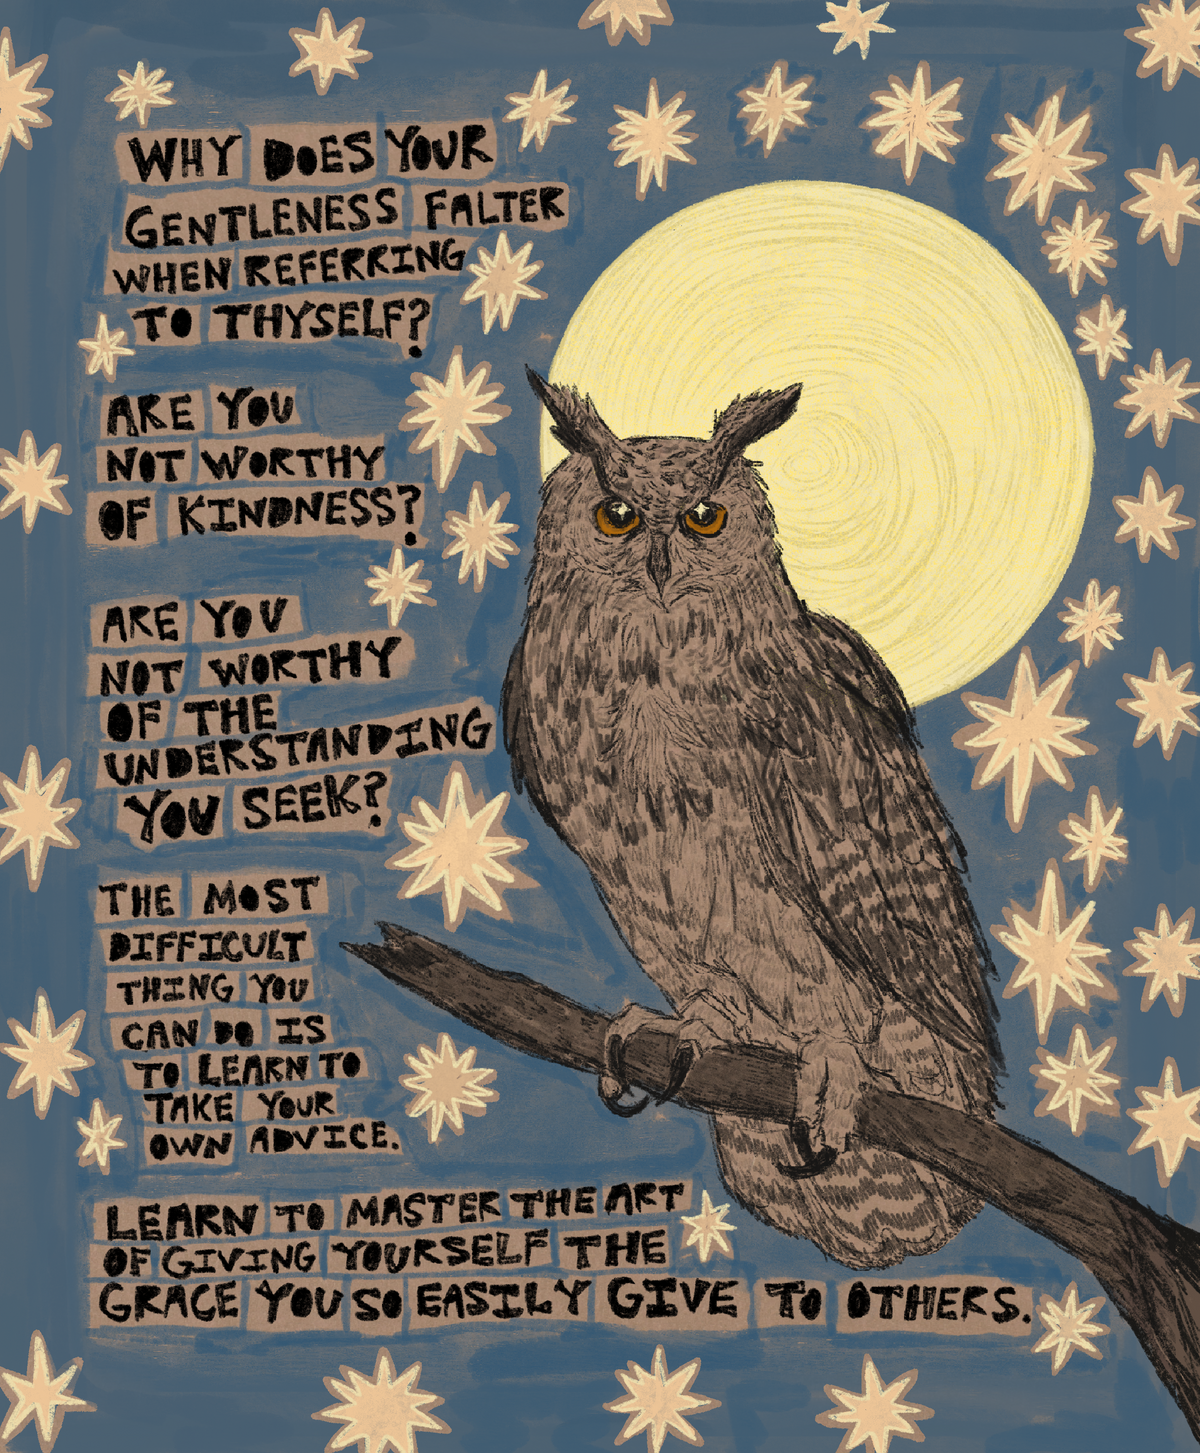 WHY DOES YOUR
GENTLENESS FALTER
WHEN REFERRING
TO THYSELF?
ARE YOU
NOT WORTHY
OF KINDNESS?
ARE YOU
NOT WORTHY
OF THE
UNDERSTANDING
YOU SEEK?
THE MOST
DIFFICULT
THING YOU
CAN DO IS
TO LEARN TO
TAKE YOUR
OWN ADVICE.
LEARN TO MASTER THE ART
OF GIVING YOURSELF THE
GRACE YOU SO EASILY GIVE TO OTHERS.